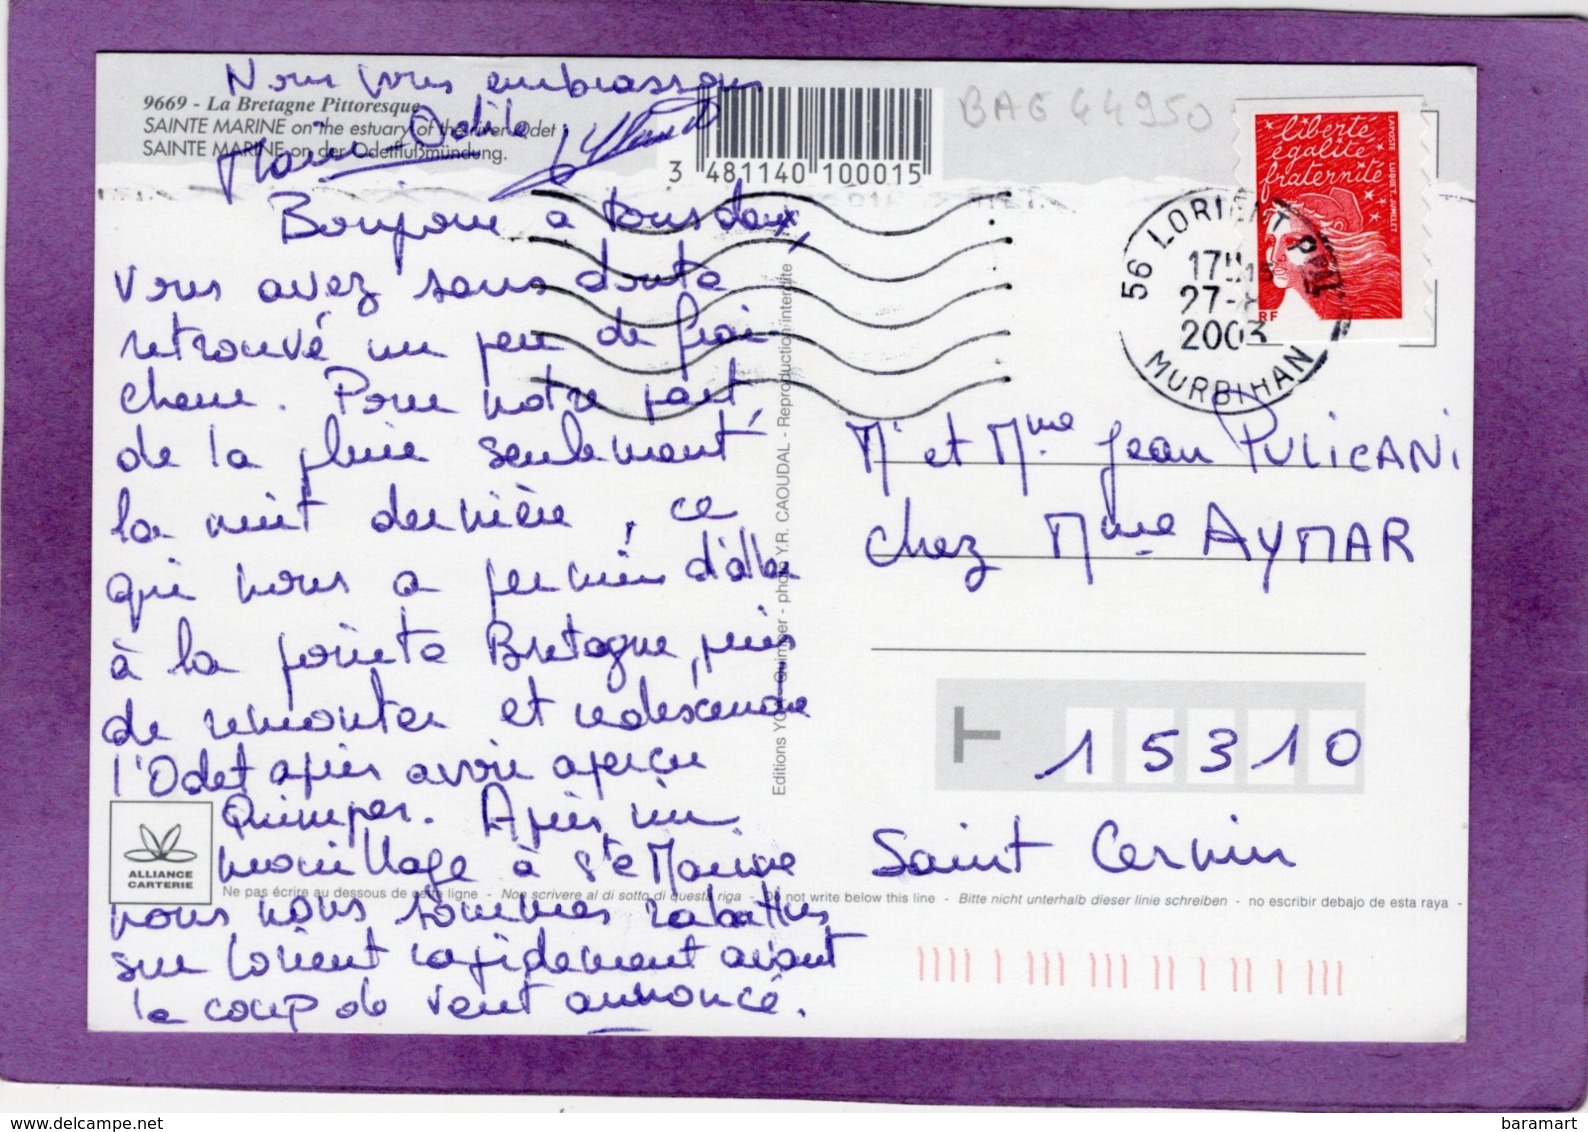 Nous vous embrassons
9669 - La Bretagne Pittoresque
SAINTE MARINE on the estuary of the river Odet
SAINTE MARINE an der Odetflußmündung.
Marie-Odile
3 481140 100015
BAG 44950
liberté
égalité
fraternité
LAPOSTE LUQUET.JUMELET
RF
56 LORIENT
17H
27-8
2003
MORBIHAN
Bonjour à tous deux,
Vous avez sans doute
retrouvé un peu de fraî
cheur. Pour notre part,
de la pluie seulement
la nuit dernière, ce
qui nous a permis d'aller
à la pointe Bretagne, puis
de remonter et redescendre
l'Odet après avoir aperçu
Quimper. Après un
mouillage à Ste Marine
nous nous sommes rabattus
sur Lorient rapidement avant
le coup de vent annoncé.
Editions YCA Quimper - photo Y.R. CAOUDAL - Reproduction interdite
Mr et Mme Jean PULICANI
chez Mme AYMAR
15310
Saint Cernin
ALLIANCE
CARTERIE
Ne pas écrire au dessous de cette ligne - Non scrivere al di sotto di questa riga - Do not write below this line - Bitte nicht unterhalb dieser linie schreiben - no escribir debajo de esta raya -
www.delcampe.net
baramart